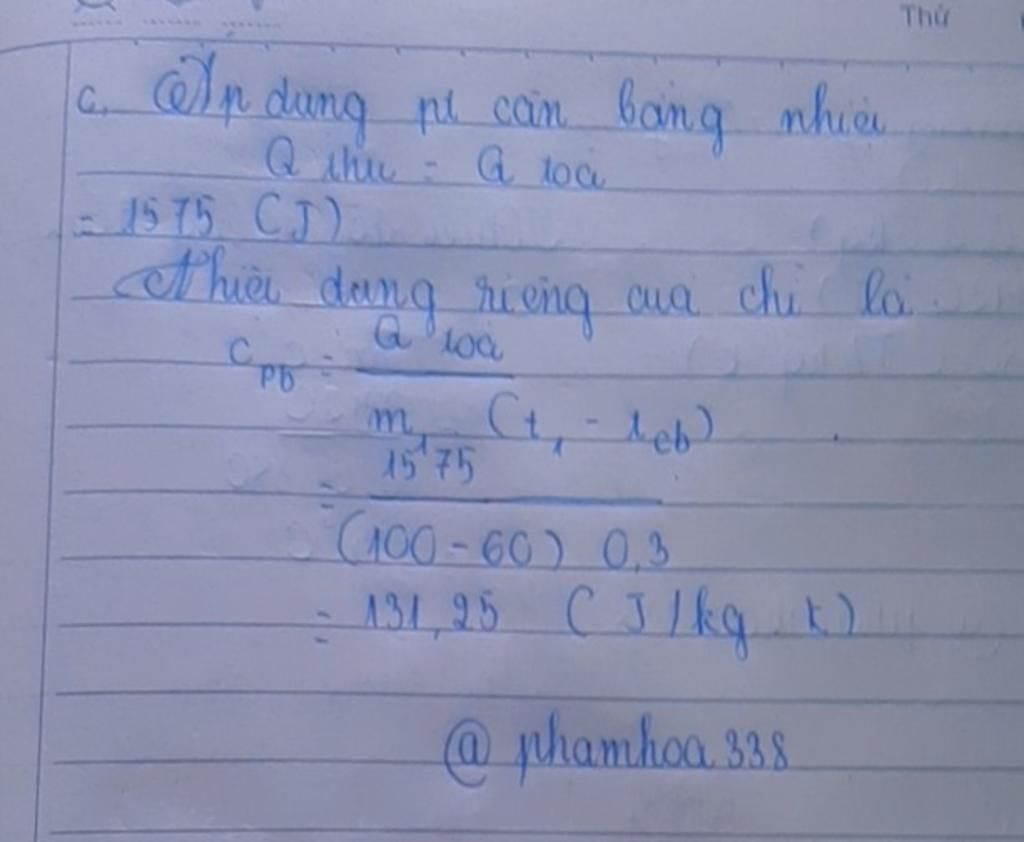 Thứ
c. Áp dụng pt cân bằng nhiệt
Q thu = Q toả
= 1575 (J)
Nhiệt dung riêng của chì là
c_Pb = Q toả
m₁ (t₁ - t_cb)
= 1575
(100 - 60) 0,3
= 131,25 (J/kg.K)
@phamhoa338